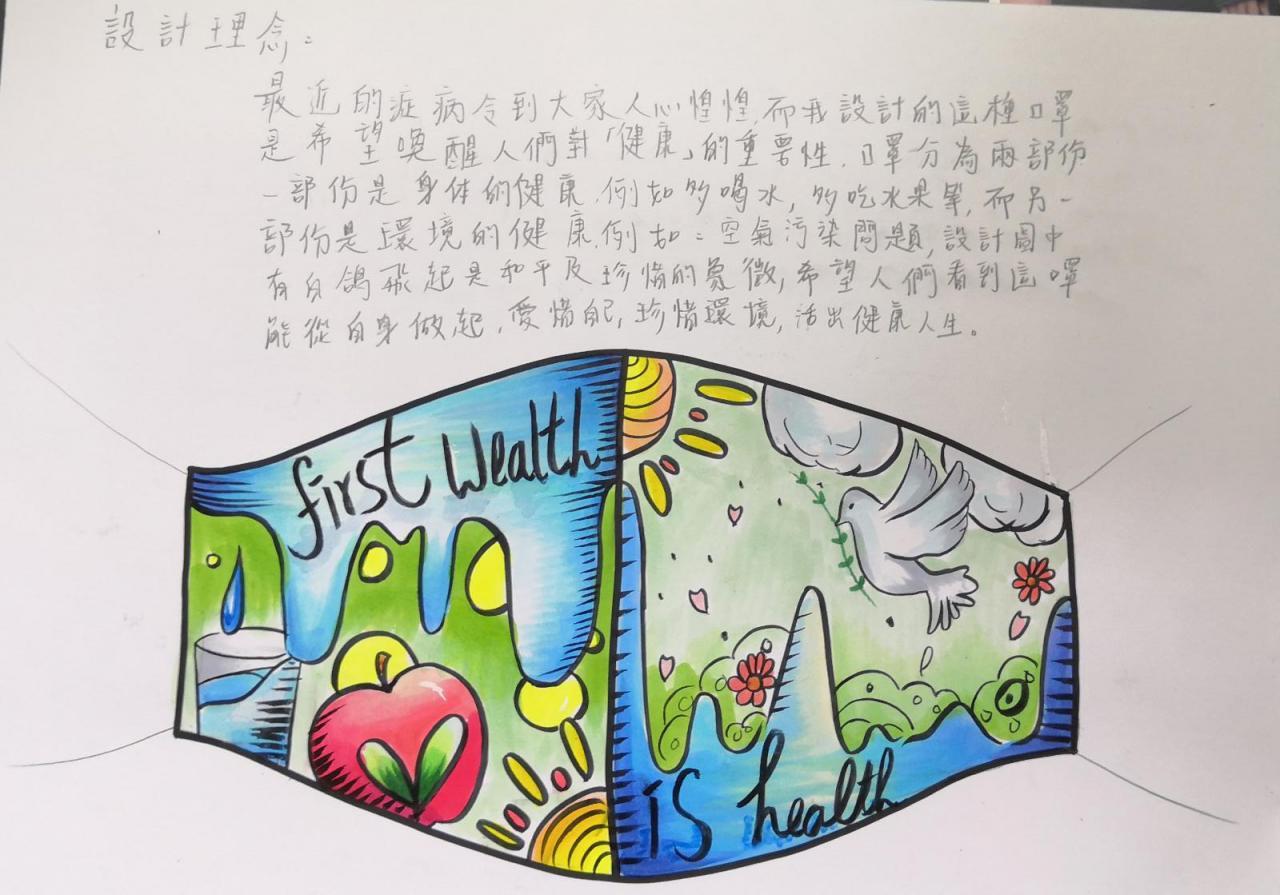 設計理念：
最近的症病令到大家人心惶惶，而我設計的這種口罩
是希望喚醒人們對「健康」的重要性，口罩分為兩部份
一部份是身体的健康，例如多喝水，多吃水果等，而另一
部份是環境的健康，例如：空氣污染問題，設計圖中
有白鴿飛起是和平及珍惜的象徵，希望人們看到這罩
能從自身做起，愛惜自己，珍惜環境，活出健康人生。
first Wealth
is health